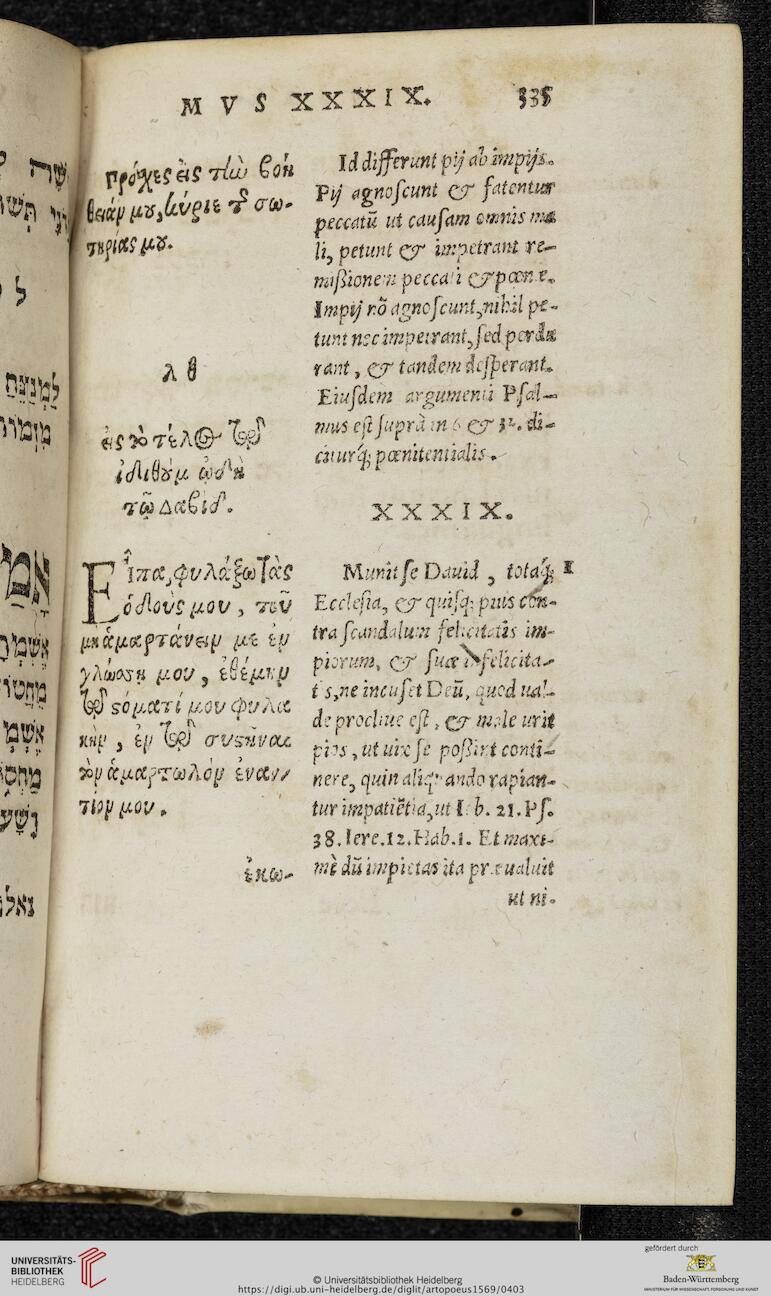 MVS XXXIX. 335
πρόχες εἰς τίω βοή
θειάν μȣ, κύριε τ͂ σω-
τηρίας μȣ.
λ θ
εἰς τὸ τέλος τῷ
ἰδιθούμ ᾠδὴ
τῷ Δαβίδ.
Εἶπα, φυλάξω τὰς
ὁδούς μου, τοῦ
μὴ ἁμαρτάνειν με ἐν
γλώσσῃ μου, ἐθέμην
τῷ στόματί μου φυλα
κὴν, ἐν τῷ συστῆναι
τὸν ἁμαρτωλὸν ἐναν
τίον μου.
ἐκω-
Id differunt pij ab impijs.
Pij agnoscunt & fatentur
peccatũ ut causam omnis ma
li, petunt & impetrant re-
mißionem peccati & pœnæ.
Impij nõ agnoscunt, nihil pe-
tunt nec impetrant, sed perdu
rant, & tandem desperant.
Eiusdem argumenti Psal-
mus est suprà in 6 & 32. di-
citurq́; pœnitentialis.
XXXIX.
Munit se Dauid, totaq́; 1
Ecclesia, & quisq; pius con-
tra scandalum felicitatis im-
piorum, & suæ infelicita-
tis, ne incuset Deũ, quod ual-
de procliue est, & male urit
pios, ut uix se poßint conti-
nere, quin aliquando rapian-
tur impatiẽtia, ut Iob. 21. Ps.
38. Iere. 12. Hab. 1. Et maxi-
mè dũ impietas ita præualuit
ut ni-
ל
לַמְנַצֵּחַ
UNIVERSITÄTS-
BIBLIOTHEK
HEIDELBERG
© Universitätsbibliothek Heidelberg
https://digi.ub.uni-heidelberg.de/diglit/artopoeus1569/0403
gefördert durch
Baden-Württemberg
MINISTERIUM FÜR WISSENSCHAFT, FORSCHUNG UND KUNST